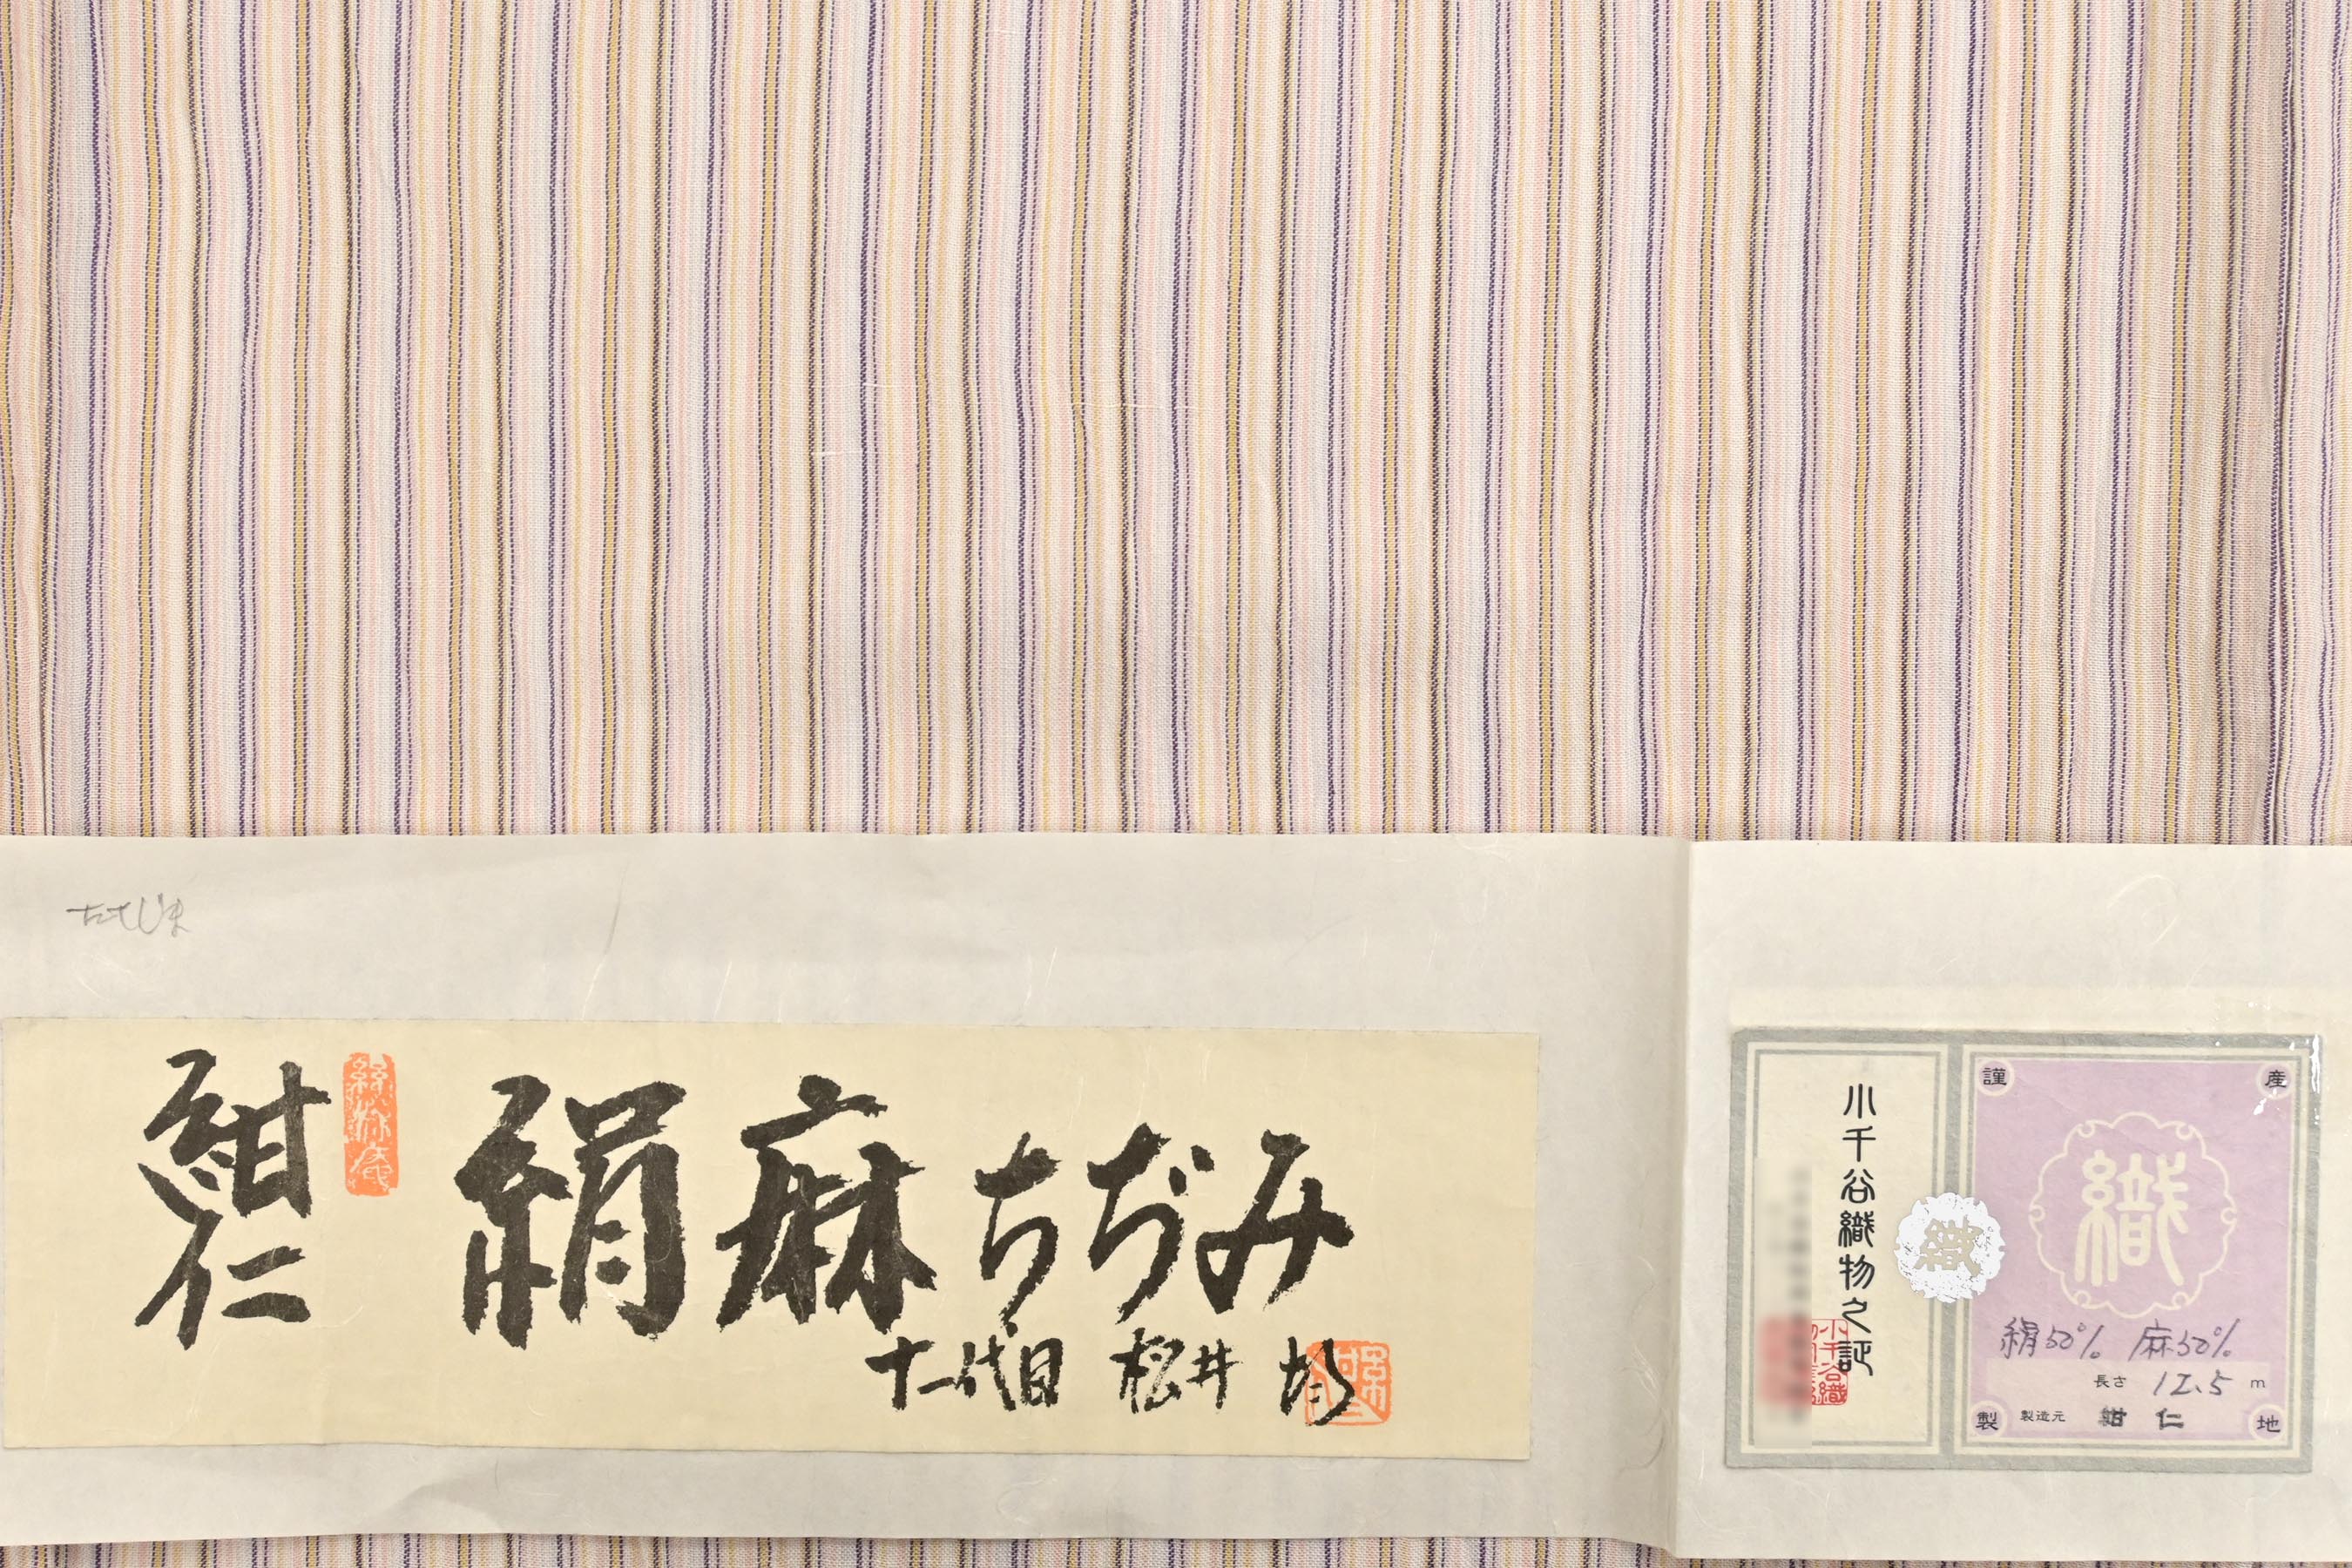 たてじま
紺仁
絹麻ちぢみ
十一代目 松井 均
小千谷織物之証
謹
産
織
織
絹50% 麻50%
長さ 12.5 m
製造元 紺仁
製
地